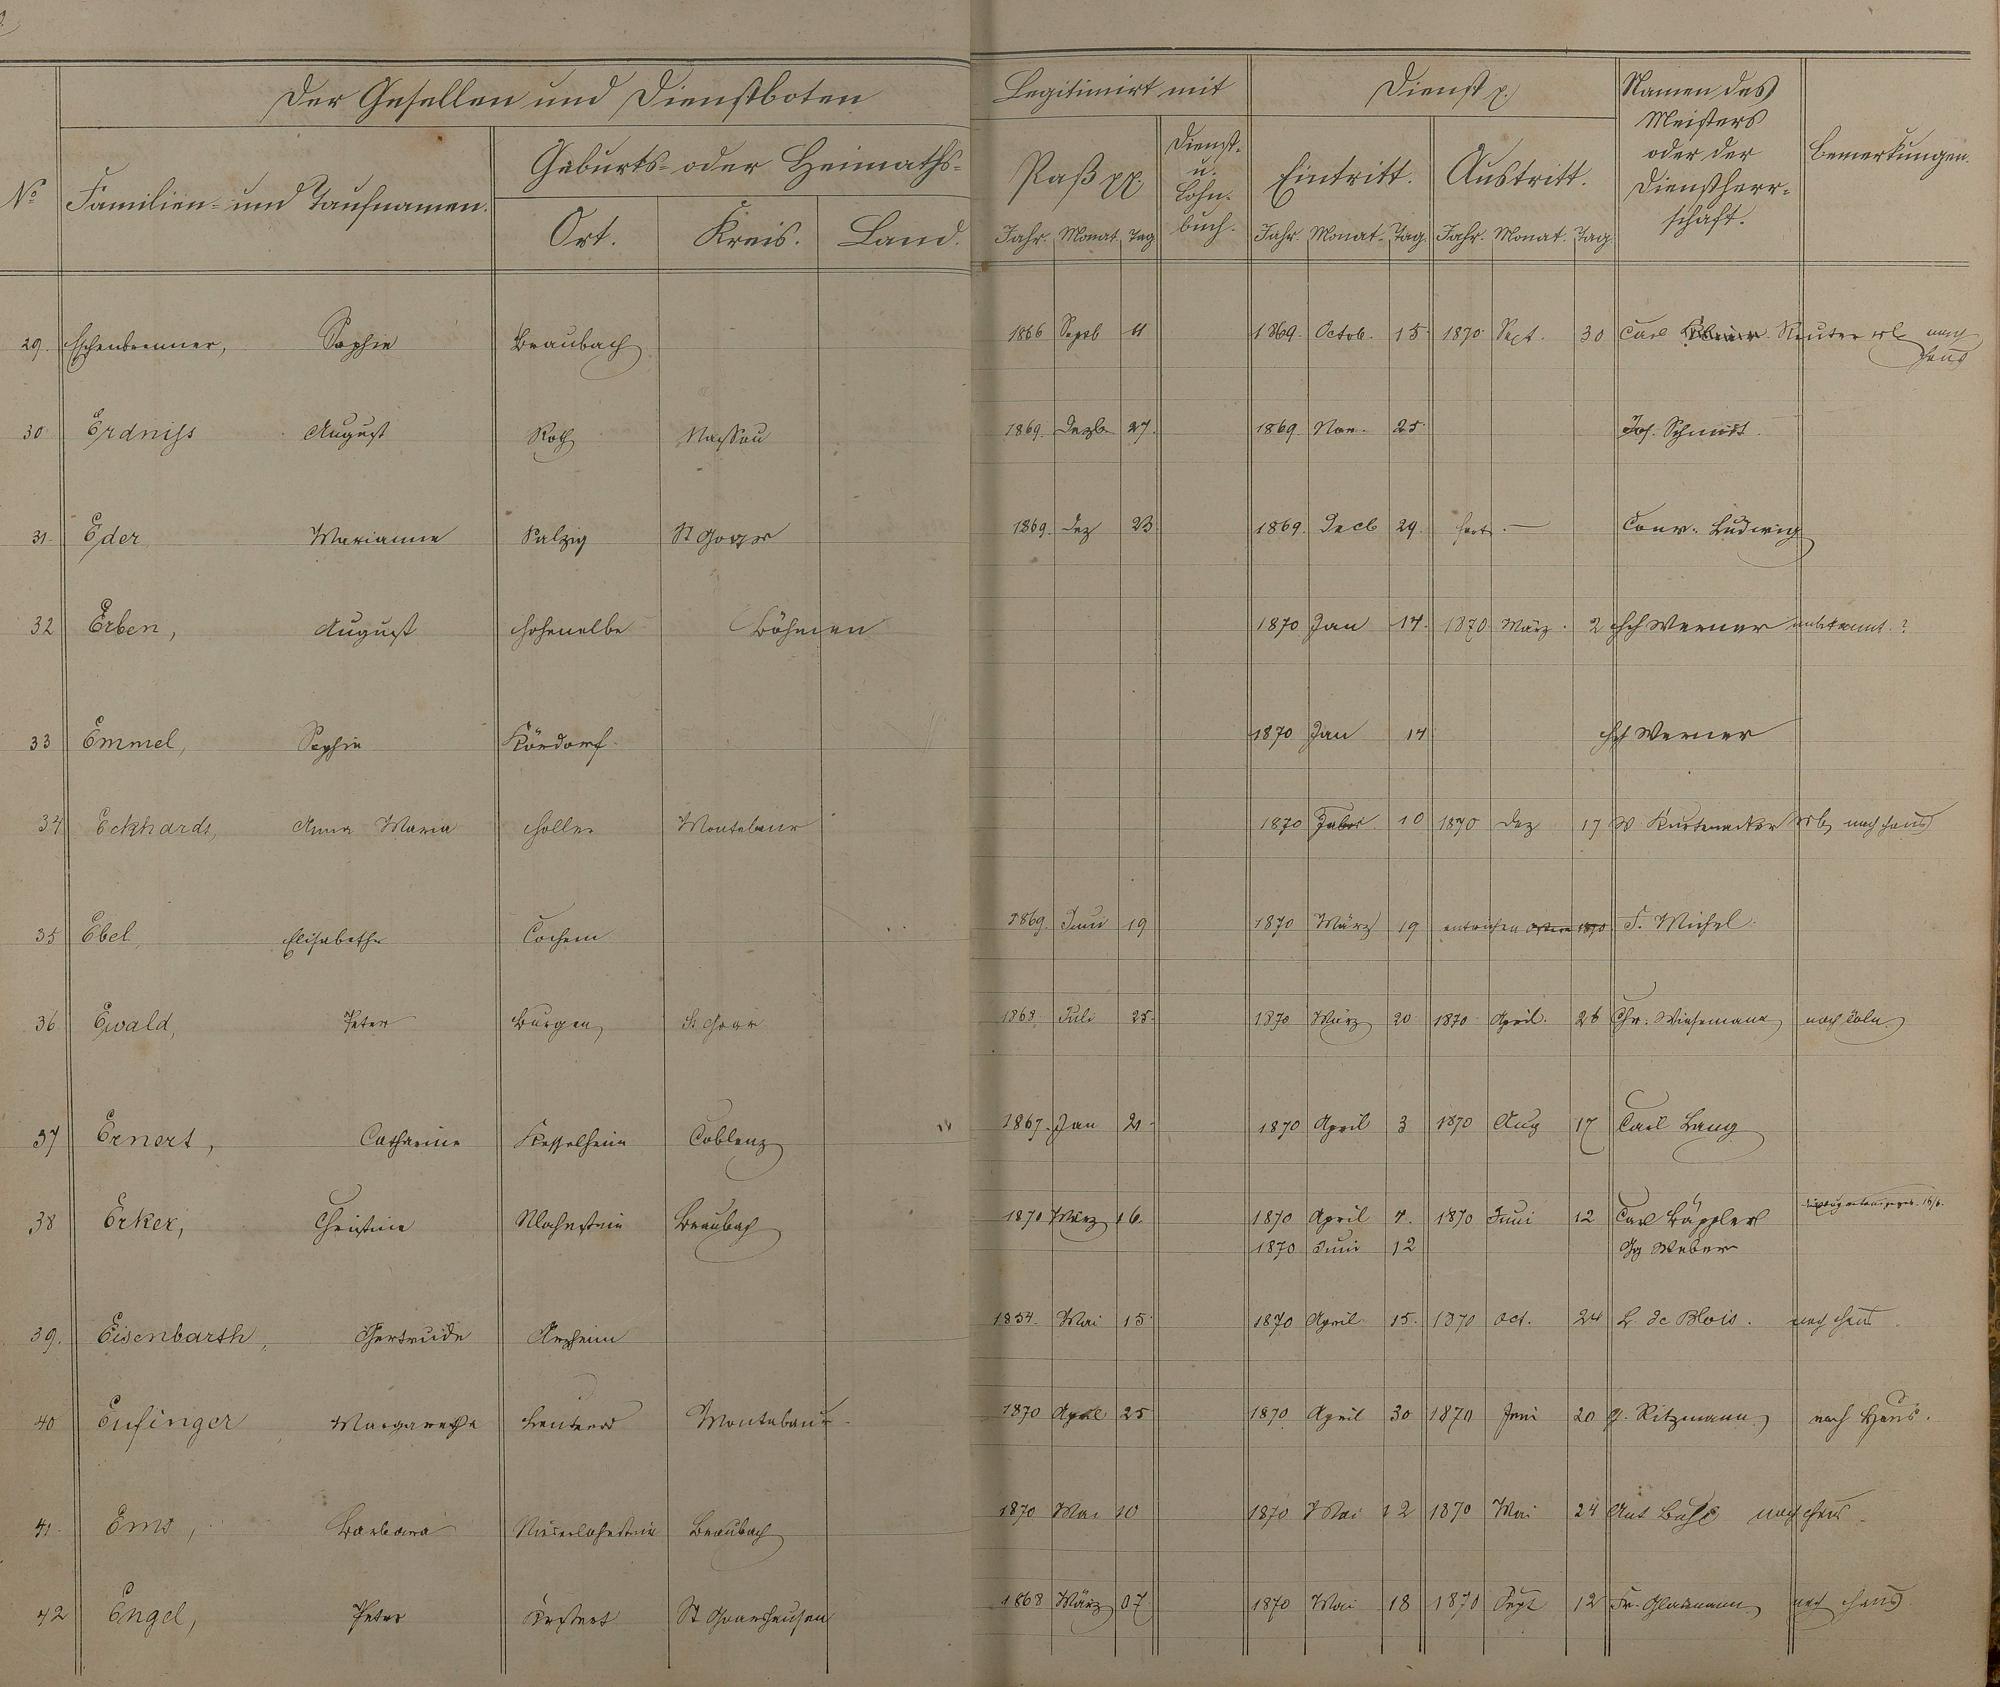 Der Gesellen und Dienstboten Legitimirt mit Dienst p. Namen des Meisters oder der Dienstherrschaft. Bemerkungen.
No Familien- und Taufnamen. Geburts- oder Heimaths- Paß pp. Dienst- u. Lohn-buch. Eintritt. Austritt.
Ort. Kreis. Land. Jahr. Monat. Tag Jahr. Monat. Tag. Jahr. Monat. Tag.
29. Eschenbrenner, Sophie Braubach 1866 Septb 11 1869. Octob. 15 1870 Sept. 30 Carl Reuter nach Haus
30 Erdniss August Roth Nassau 1869. Dezb 27. 1869. Nov. 25 Jos. Schmidt.
31. Eder Marianne Salzig St Goar 1869. Dez 23 1869. Decb 29. fort. — Conr. Ludwig
32 Erben, August Hohenelbe Böhmen 1870 Jan 14. 1870 März. 2 Werner unbekannt. ?
33 Emmel, Sophie Kördorf. 1870 Jan 14 Werner
34 Eckhards, Anna Maria Holler Montabaur 1870 Febr. 10 1870 Dez 17 W Kurtenacker nach Haus
35 Ebel, Elisabethe Cochem 1869. Juni 19 1870 März 19 entwichen Ostern 1870 F. Michel.
36 Ewald, Peter Burgen St. Goar 1868. Juli 25. 1870 März 20 1870 April. 26 Chr. Wiesemann nach Cöln.
37 Ernert, Catharine Kesselheim Coblenz 1867. Jan 21. 1870 April 3 1870 Aug 17 Carl Lang
38 Erker, Christine Braubach 1870 März 16. 1870 April 4. 1870 Juni 12 Carl Bäppler
1870 Juni 12 Gg Weber
39. Eisenbarth, Gertrude Arzheim 1854. Mai 15. 1870 April 15. 1870 Oct. 24 L. de Blois. nach Haus.
40 Eufinger Margarethe Montabaur. 1870 April 25 1870 April 30 1870 Juni 20 Ritzmann nach Haus.
41. Ems, Barbara Niederlahnstein Braubach 1870 Mai 10 1870 Mai 12 1870 Mai 24 Ant nach Haus.
42 Engel, Peter St Goarshausen 1868 März 07 1870 Mai 18 1870 Sept 12 Fr. nach Haus.